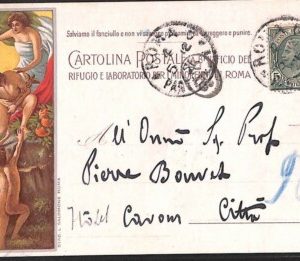 Salviamo il fanciullo e non vi sarà correggere e punire.
CARTOLINA POSTALE BENEFICIO DEL
RIFUGIO E LABORATORIO PER I MINORENNI ROMA
ROMA
All' Onmo Sg. Prof
Pierre Bonnet
Hôtel Cavour Città
STAB. L. SALOMONE ROMA